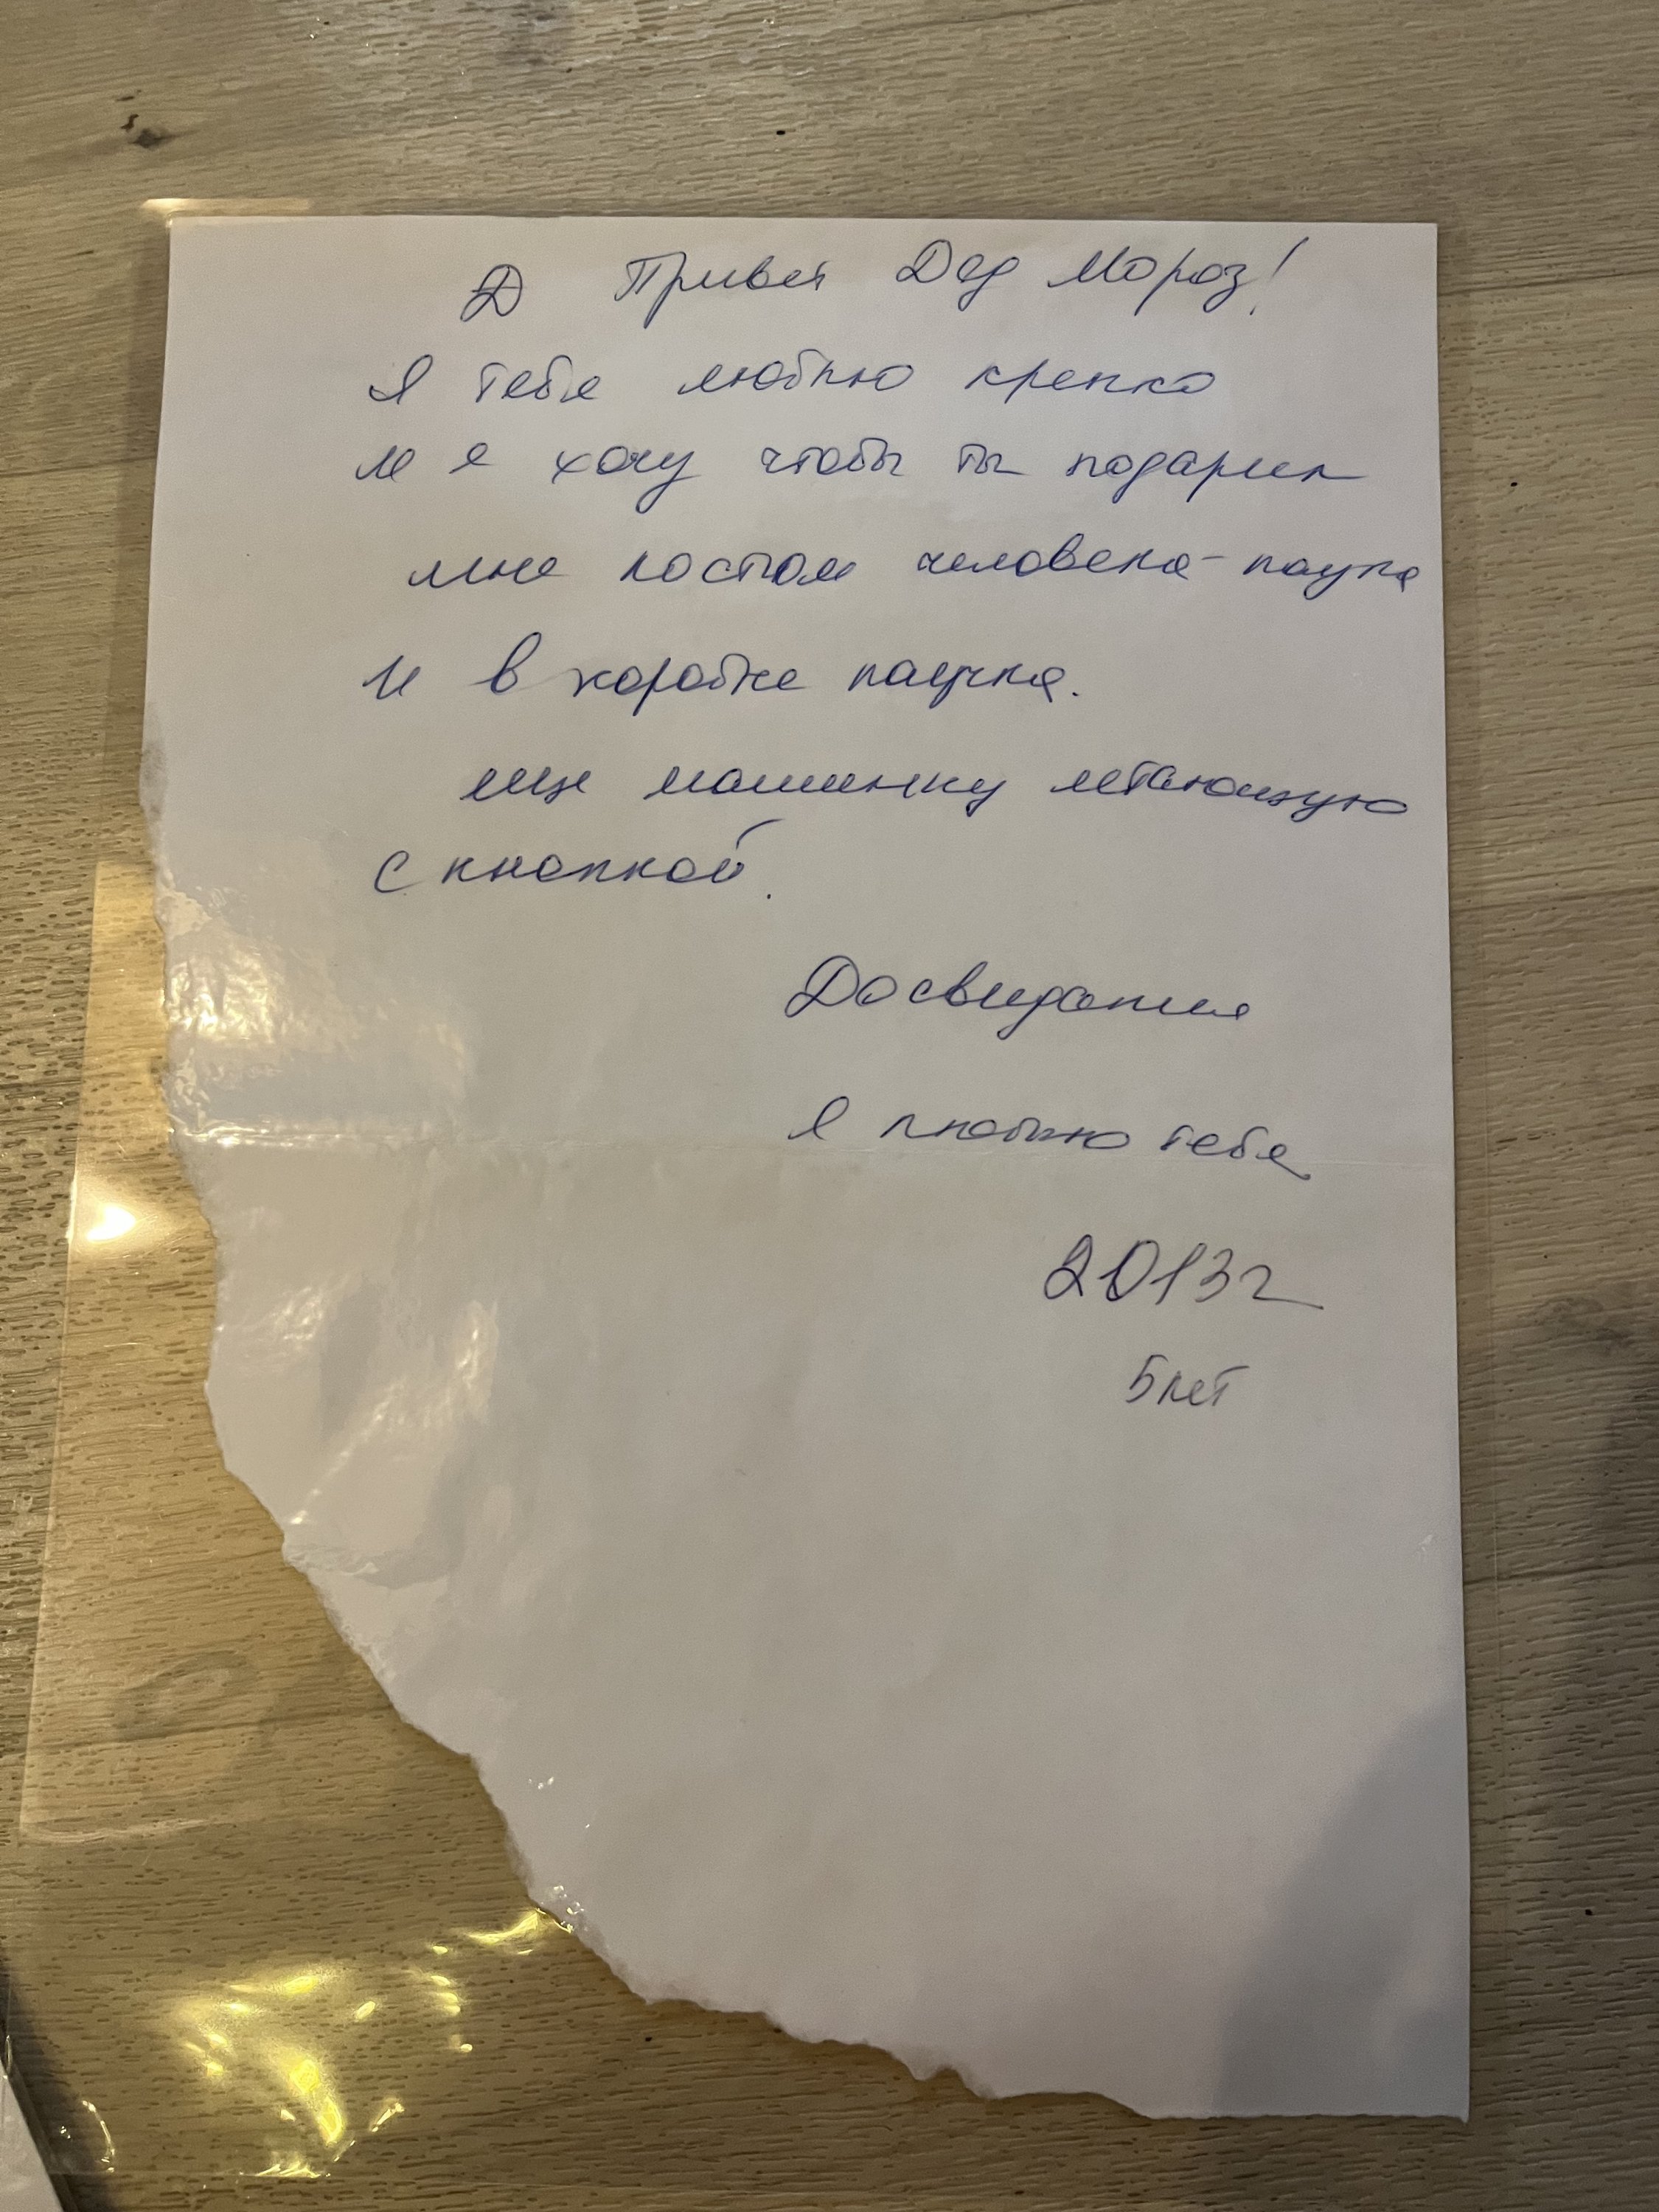 Д Привет Дед Мороз!
Я тебя люблю крепко
и я хочу чтобы ты подарил
мне костюм человека-паука
и в коробке паучка.
еще машинку летающую
с кнопкой.
Досвидания
Я люблю тебя
2013г
5 лет